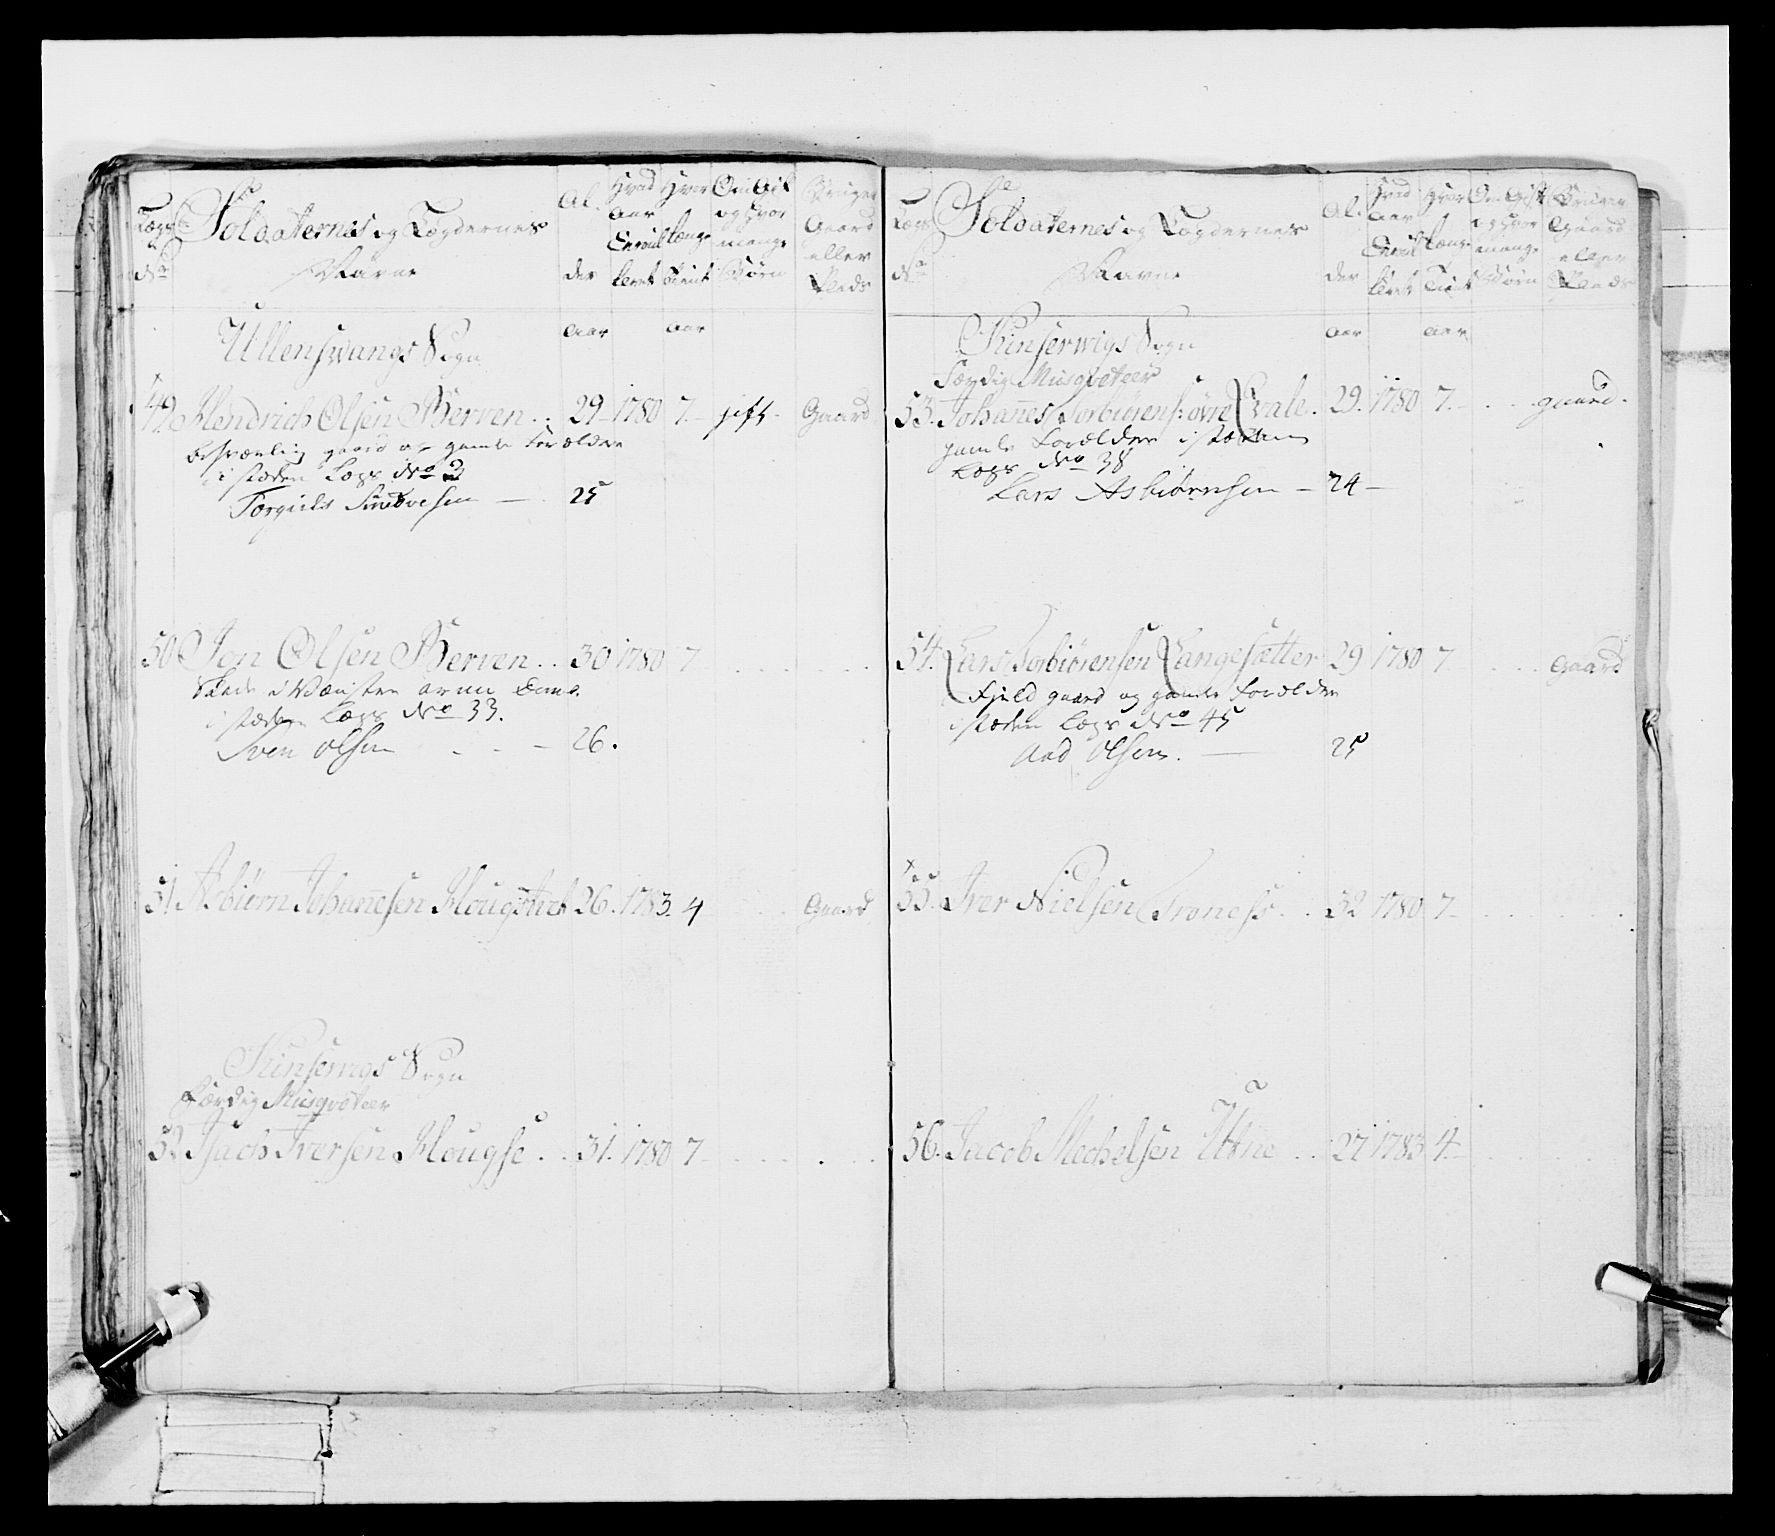 Lægs No
Soldaternes og Lægdernes Navne
Al. der
Hvad Aar Enroulleret
Hvor længe Tient
Om Gift og Hvor mange Børn
Bruger Gaard eller Plads
Ullensvangs Sogn
aar aar
49 Hendrich Olsen Berven . . 29 1780 7 gift Gaard
besværlig gaard og gamle Forældre
i stæden Lægs No 2
Torgiels Siudvesen 25
50 Jon Olsen Berven . . 30 1780 7
Skade i Wænstre arm
i stæden Lægs No 33.
Sven Olsen 26.
51 Asbiørn Johannesen 26. 1783. 4 Gaard
Kinservigs Sogn
Færdig Musqveteer
52 Isach Iversen Hougse . . 31. 1780 7
Lægs No
Soldaternes og Lægdernes Navne
Al. der
Hvad Aar Enroulleret
Hvor længe Tient
Om Gift og Hvor mange Børn
Bruger Gaard eller Plads
Kinserwigs Sogn
aar aar
Færdig Musqveteer
53. Johannes Torbiørens: øvre Qvale. 29. 1780 7. gaard.
gamle Forælder i stæden
Lægs No 38
Lars Asbiørnsen 24
54. Lars Torbiørensen Langesætter 29 1780 7 Gaard
Fjeld gaard og gamle Forældre
i stæden Lægs No 45
Aad Olsen. 25
55. Iver Nielsen Troness . . 32 1780 7
56. Jacob Mechelsen Utne . . 27 1783 4